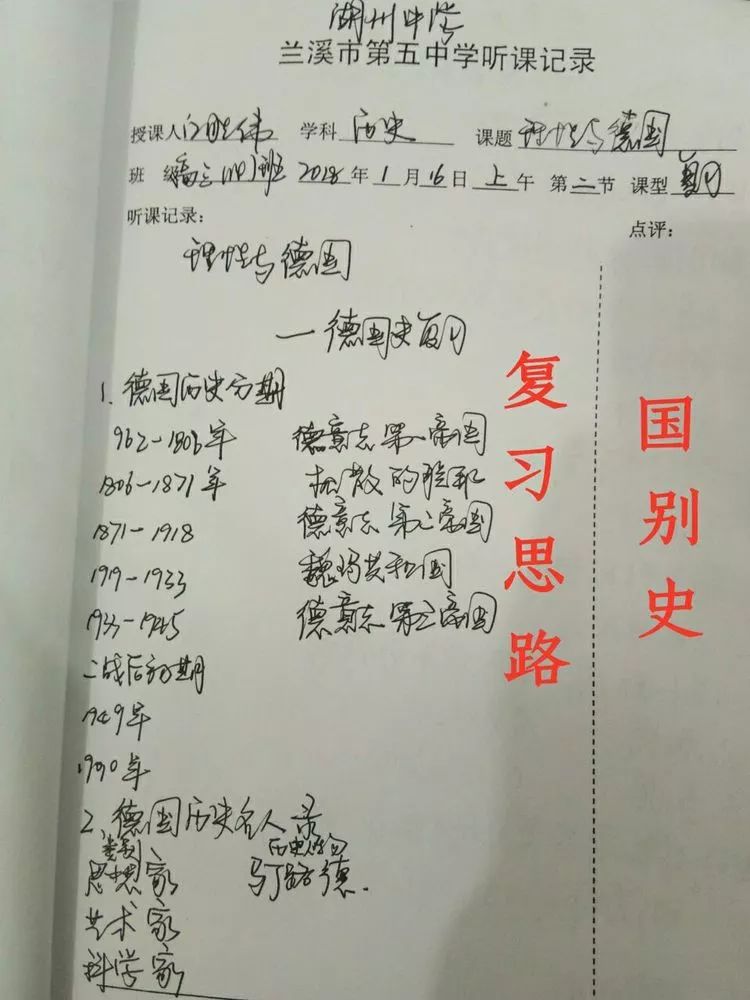 湖州中学
兰溪市第五中学听课记录
授课人 胜伟 学科 历史 课题 理性与德国
班 级 高三 班 2018年1月16日上午 第二节 课型 复习
听课记录: 点评:
理性与德国
一 德国史复习
1、德国历史分期
962-1806年 德意志第一帝国
1806-1871年 松散的
1871-1918 德意志第二帝国
1919-1933 魏玛共和国
1933-1945 德意志第三帝国
二战后初期
1949年
1990年
2、德国历史名人录
类别 历史人物
思想家 马丁路德.
艺术家
科学家
复习思路
国别史